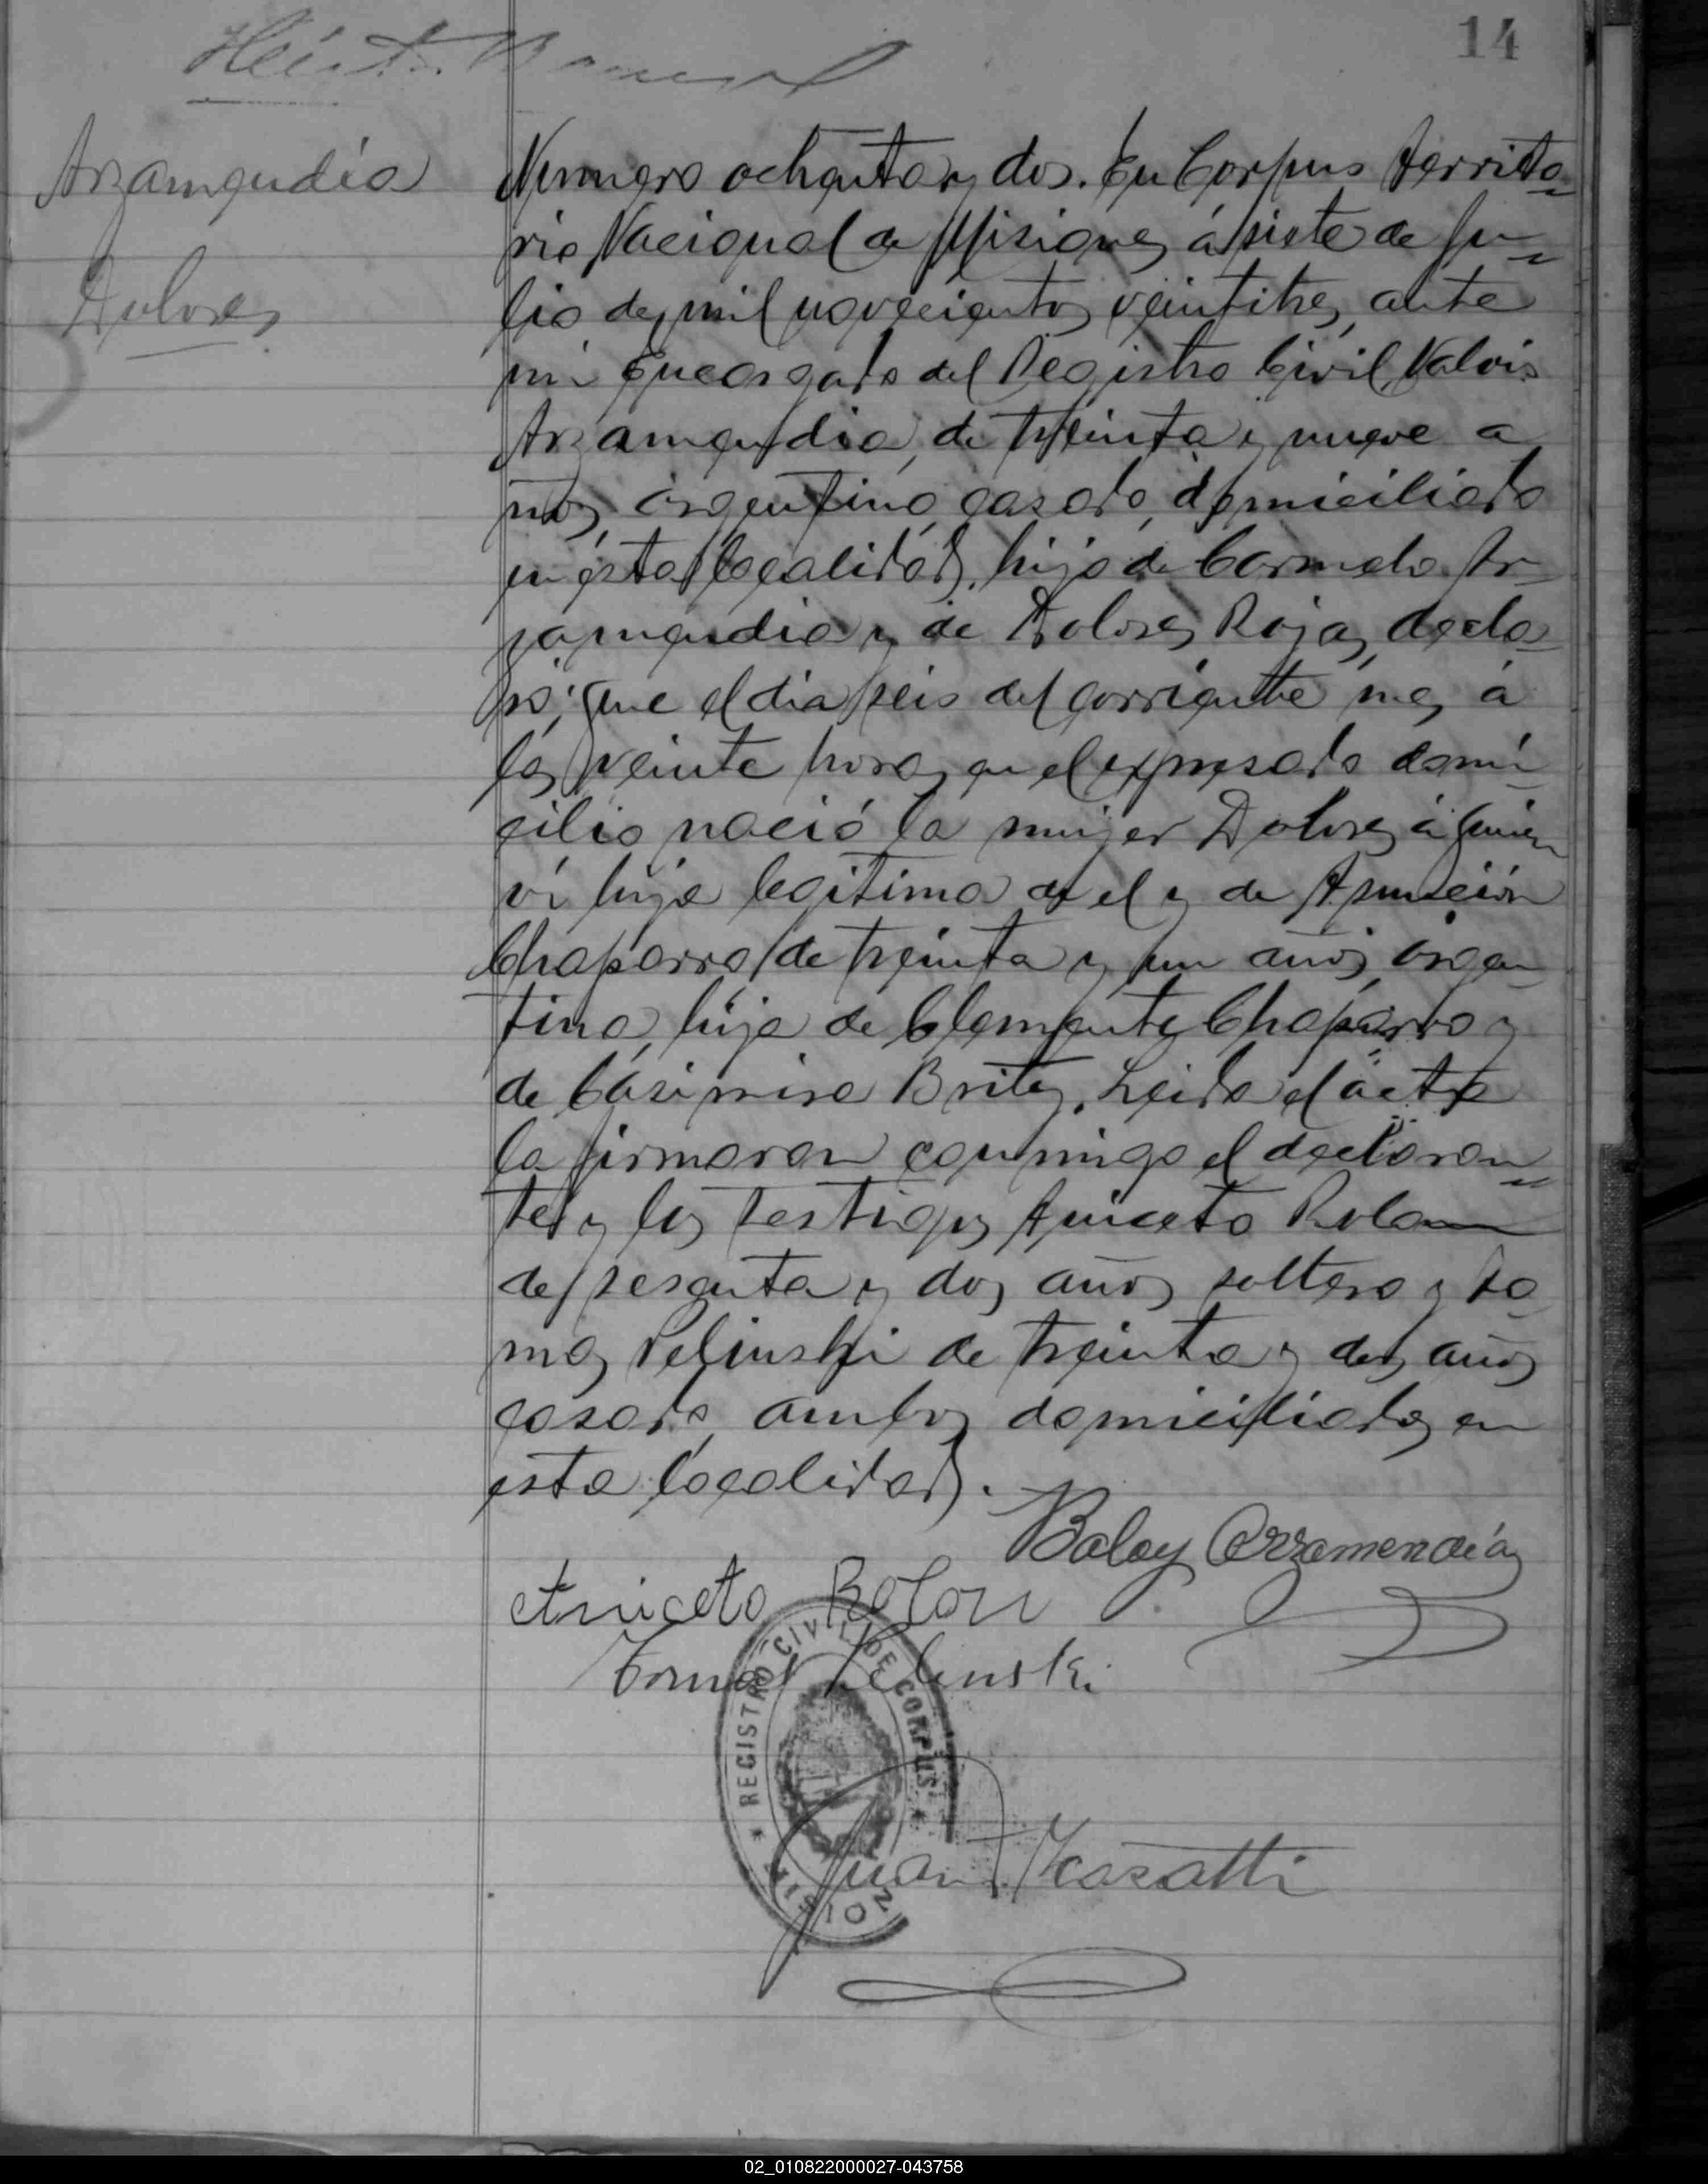 14
Arzamendia
Dolores
Numero ochenta y dos. En Corpus Territo-
rio Nacional de Misiones, á siete de Ju-
lio de mil novecientos veintitres, ante
mi Encargado del Registro Civil,
Arzamendia, de treinta y nueve a
ños, argentino, casado, domiciliado
en esta localidad, hijo de Carmelo Ar-
zamendia y de Dolores Rojas, decla-
ró; que el dia seis del corriente mes á
las veinte horas en el expresado domi-
cilio nació la mujer Dolores á quien
ví hija legitima de el y de Asunción
Chaparro, de treinta y un años, argen-
tina, hija de Clemente Chaparro y
de Casimira Britez. Leida el acta
la firmaron conmigo el declaran-
te y los testigos Aniceto Rolon
de sesenta y dos años soltero y To
mas Pelinski de treinta y dos años
casado, ambos domiciliados en
esta localidad.
Baloy Arzamendia
Aniceto Rolon
Tomas Pelinski
REGISTRO CIVIL DE CORPUS
MISION
Juan Casatti
02_010822000027-043758